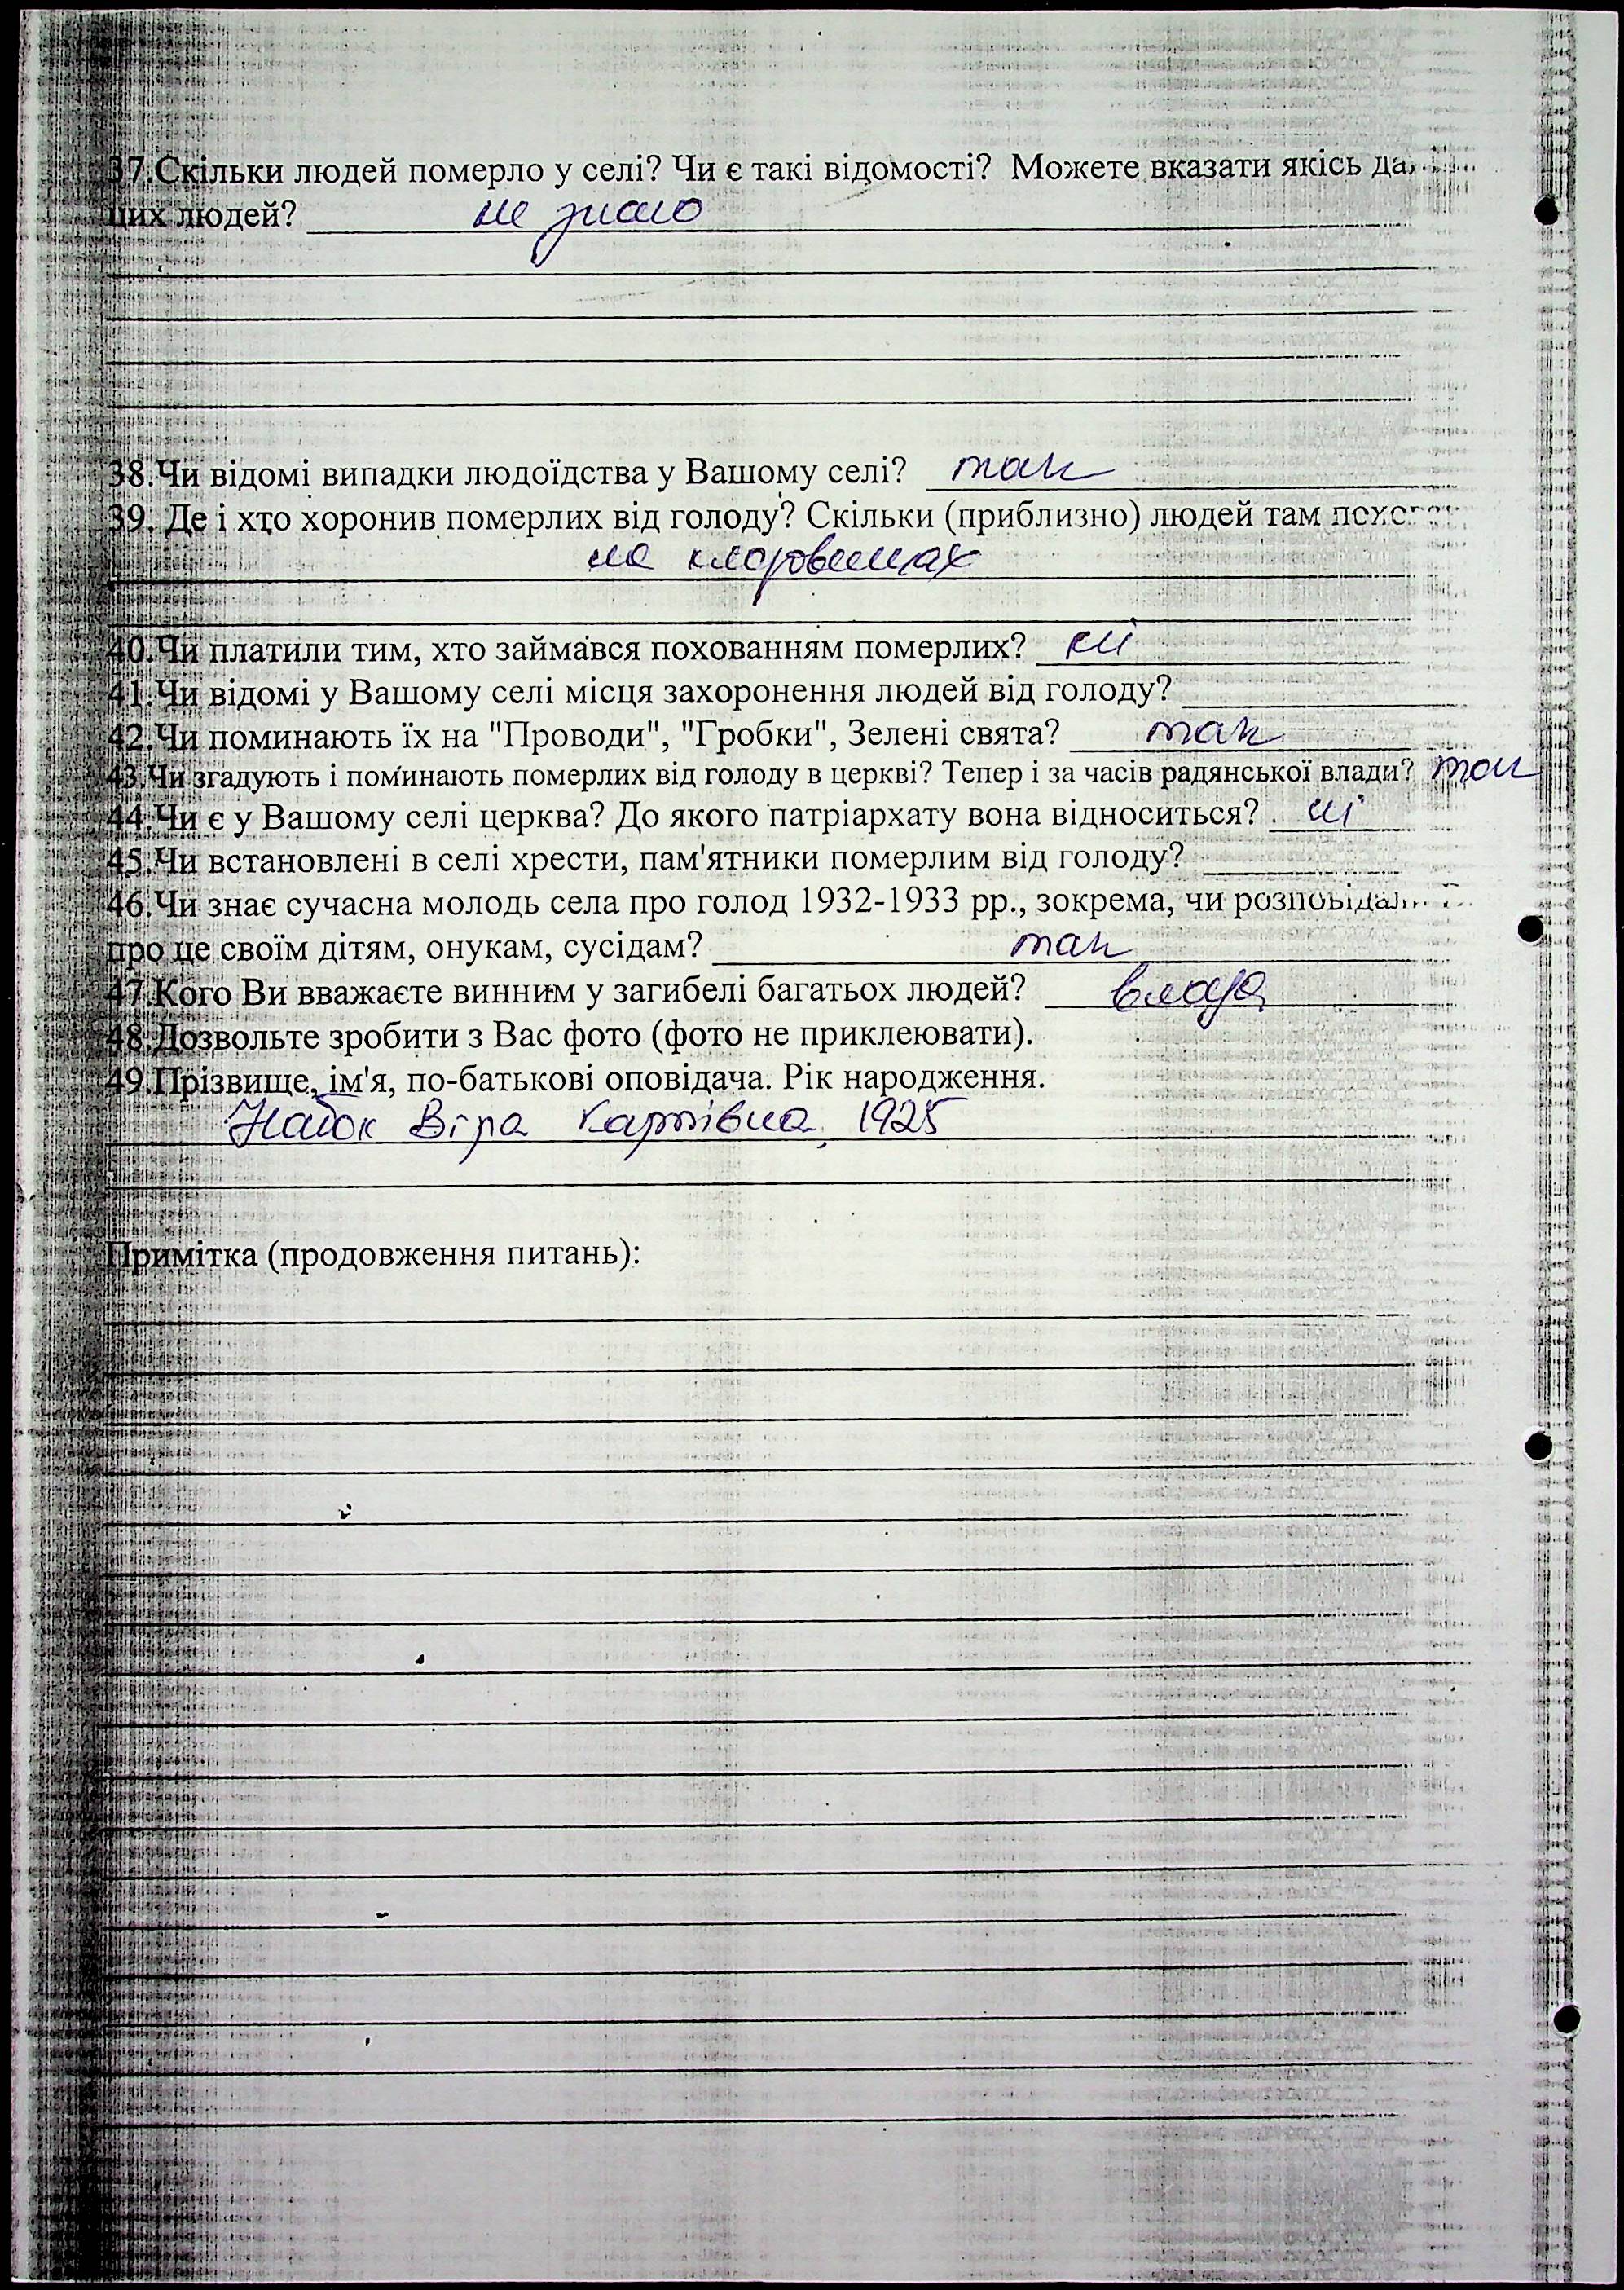 37.Скільки людей померло у селі? Чи є такі відомості? Можете вказати якісь
цих людей? не знаю
38.Чи відомі випадки людоїдства у Вашому селі? так
39. Де і хто хоронив померлих від голоду? Скільки (приблизно) людей там
на кладовищах
40.Чи платили тим, хто займався похованням померлих? ні
41.Чи відомі у Вашому селі місця захоронення людей від голоду?
42.Чи поминають їх на "Проводи", "Гробки", Зелені свята? так
43.Чи згадують і поминають померлих від голоду в церкві? Тепер і за часів радянської влади? так
44.Чи є у Вашому селі церква? До якого патріархату вона відноситься? ні
45.Чи встановлені в селі хрести, пам'ятники померлим від голоду?
46.Чи знає сучасна молодь села про голод 1932-1933 рр., зокрема, чи
про це своїм дітям, онукам, сусідам? так
47.Кого Ви вважаєте винним у загибелі багатьох людей? влада
48.Дозвольте зробити з Вас фото (фото не приклеювати).
49.Прізвище, ім'я, по-батькові оповідача. Рік народження.
Набок Віра Карпівна, 1925
Примітка (продовження питань):